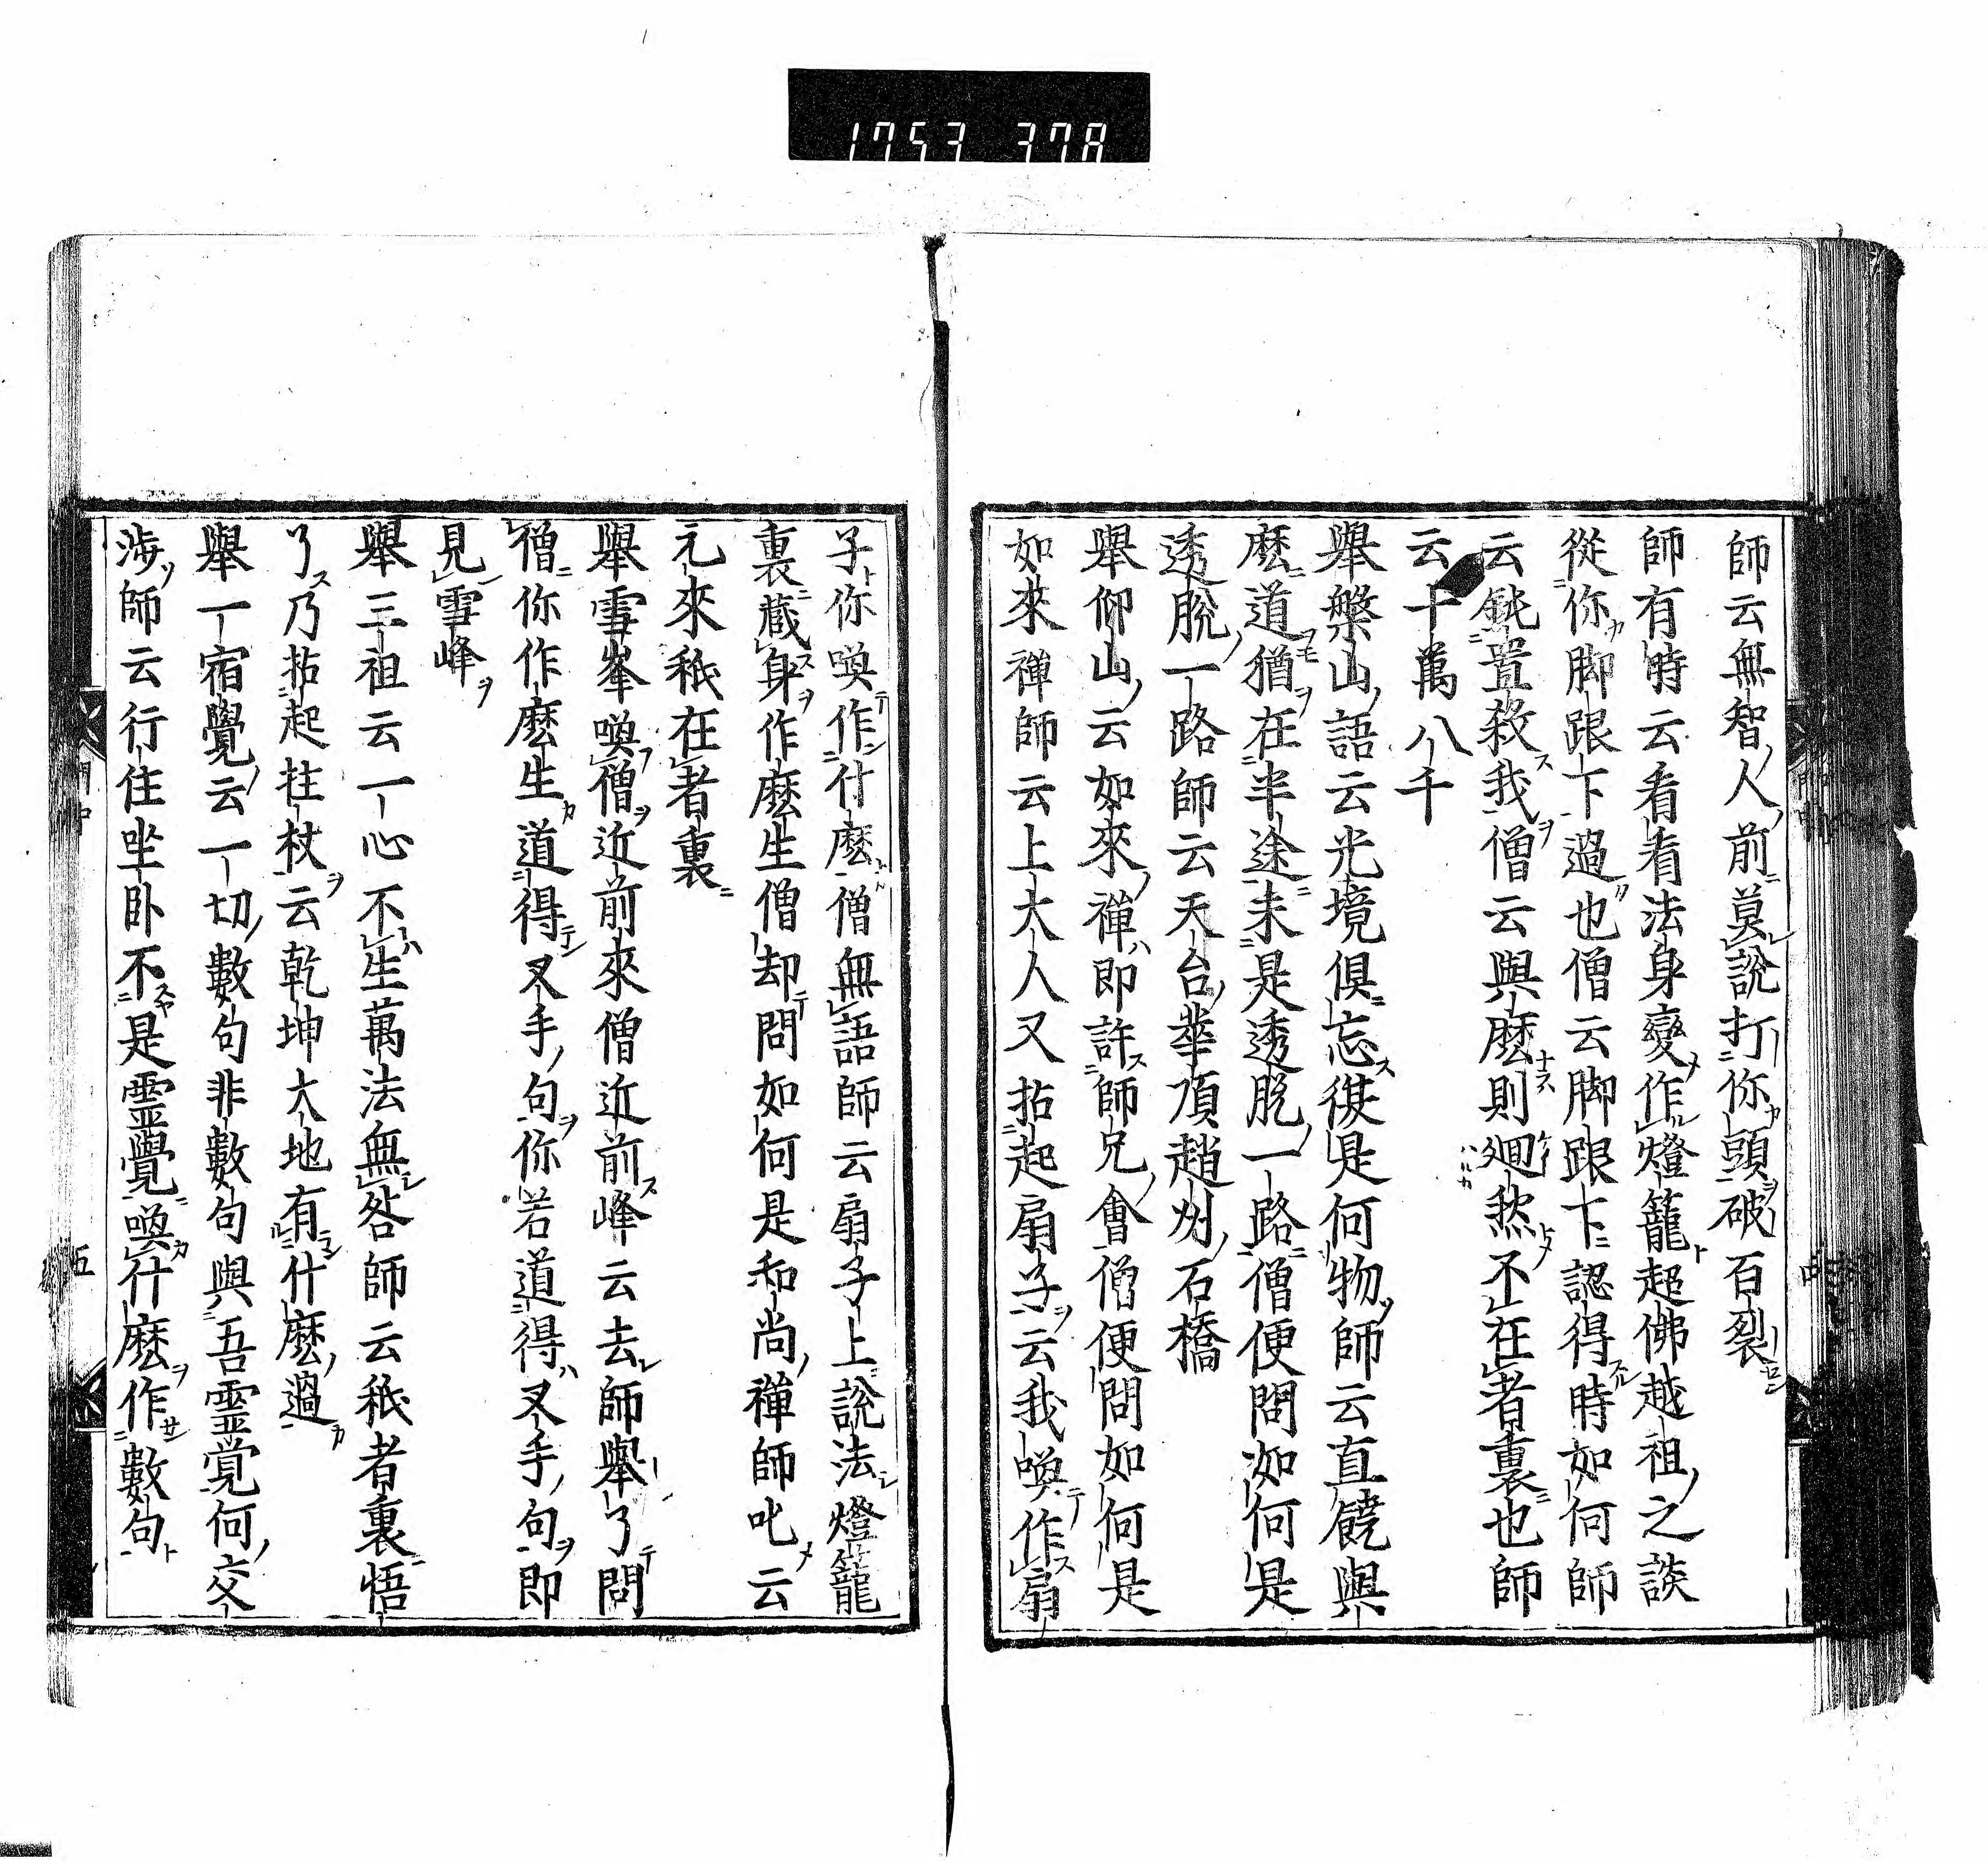 1753 378
師云無智人前莫說打你頭破百裂
師有時云看看法身變作燈籠超佛越祖之談
從你脚跟下過也僧云脚跟下認得時如何師
云鈍置殺我僧云與麽則迴然不在者裏也師
云十萬八千
舉槃山語云光境俱忘復是何物師云直饒與
麽道猶在半途未是透脫一路僧便問如何是
透脫一路師云天台華頂趙州石橋
舉仰山云如來禪即許師兄會僧便問如何是
如來禪師云上大人又拈起扇子云我喚作扇
子你喚作什麽僧無語師云扇子上說法燈籠
裏藏身作麽生僧却問如何是和尚禪師叱云
元來秖在者裏
舉雪峯喚僧近前來僧近前峰云去師舉了問
僧你作麽生道得叉手句你若道得叉手句即
見雪峰
舉三祖云一心不生萬法無咎師云秖者裏悟
了乃拈起拄杖云乾坤大地有什麽過
舉一宿覺云一切數句非數句與吾靈覚何交
涉師云行住坐臥不是靈覺喚什麽作數句
五